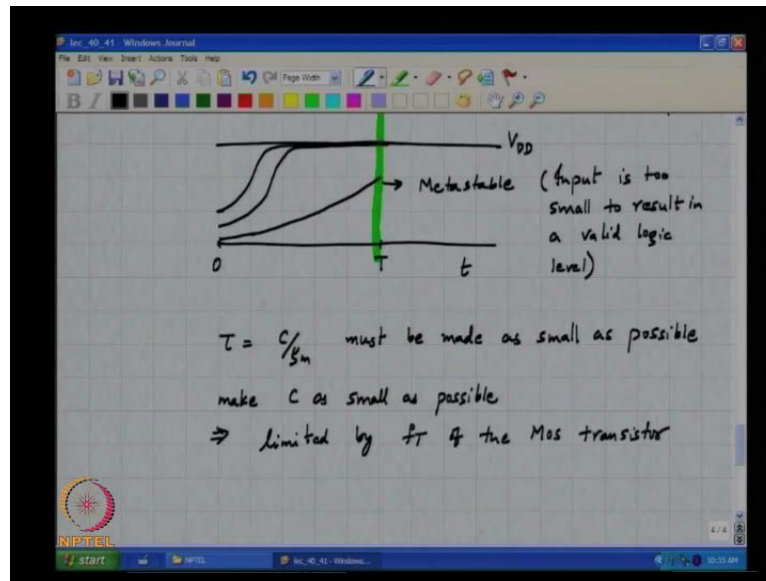 lec_40_41 - Windows Journal
File Edit View Insert Actions Tools Help
Page Width
B I
V_DD
Metastable (Input is too
small to result in
a valid logic
level)
0 T t
τ = C/gm must be made as small as possible
make C as small as possible
⇒ limited by f_T of the MOS transistor
4 / 4
NPTEL
start NPTEL lec_40_41 - Windows... 10:35 AM